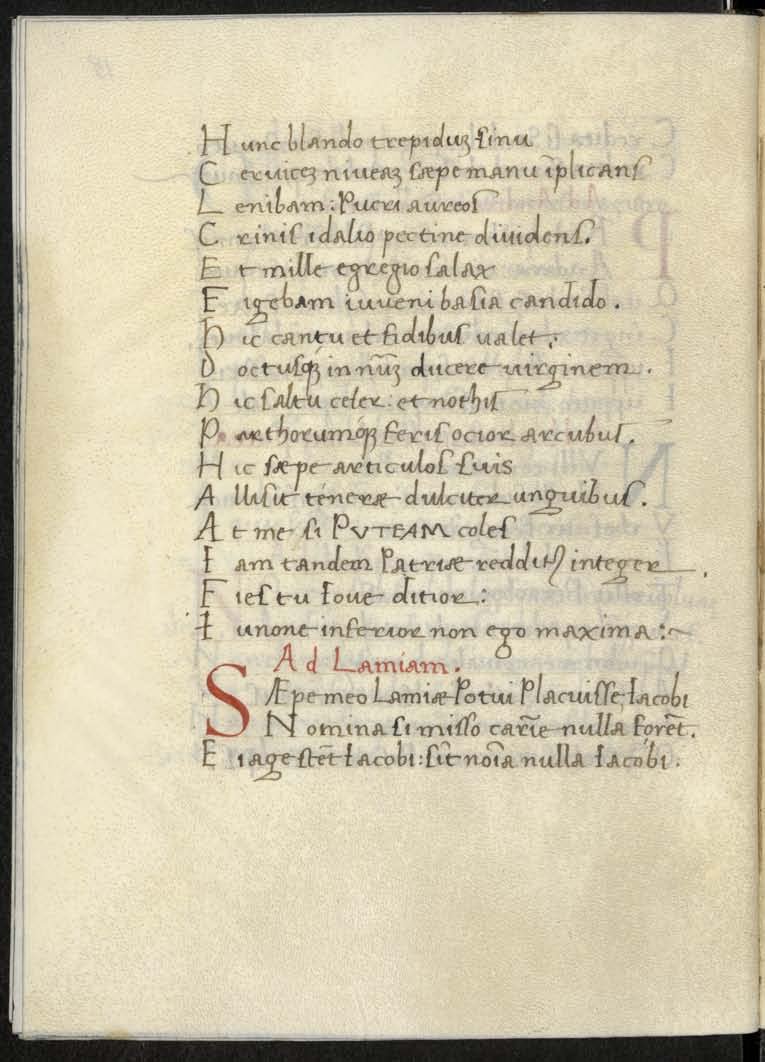 Hunc blando trepiduʒ sinu
Ceruiceʒ niueaʒ sæpe manu īplicans
Lenibam: Pueri aureos
Crinis idalio pectine diuidens.
Et mille egregio salax
Figebam iuueni basia candido.
Hic cantu et fidibus ualet:
Doctusqʒ in nūʒ ducere uirginem.
Hic saltu celer: et nothis
Parthorumqʒ feris ocior arcubus.
Hic sæpe articulos suis
Allisit teneræ dulciter unguibus.
At me si PVTEAM coles
Iam tandem Patriæ redditꝰ integer.
Fies tu Ioue ditior:
Iunone inferior non ego maxima:~
Ad Lamiam.
SÆpe meo Lamiæ Potui Placuisse Iacobi
Nomina si misso carīe nulla forēt.
Eia age stēt Iacobi: sīt noīa nulla Iacobi.